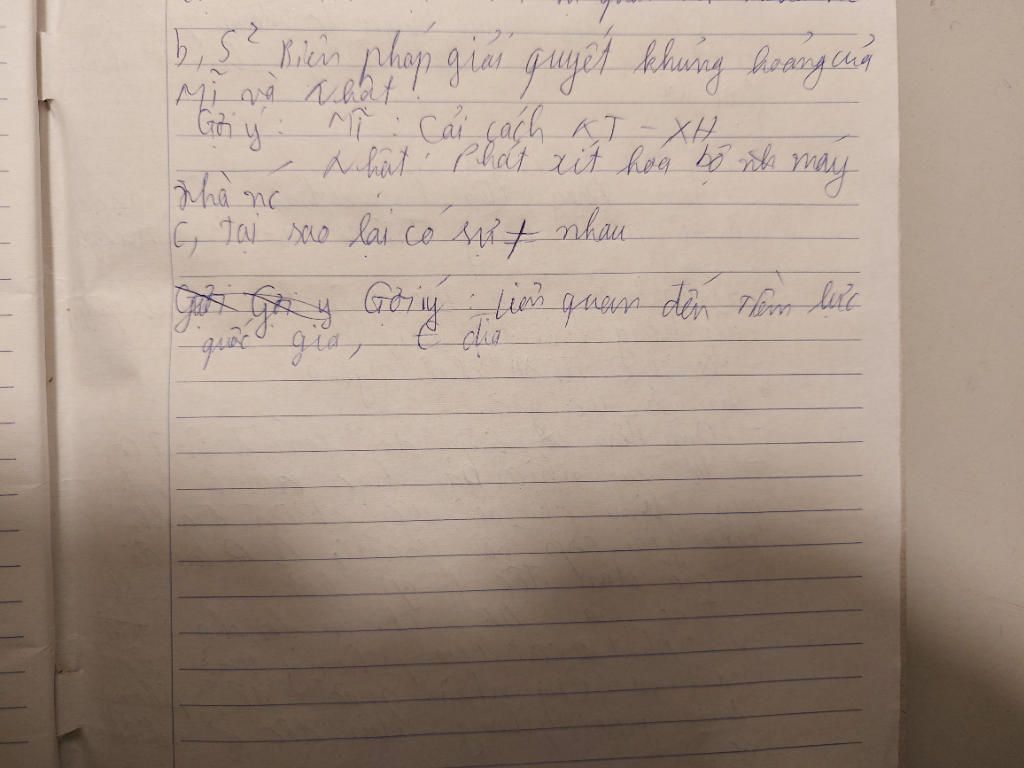 b, S² Biện pháp giải quyết khủng hoảng của
Mĩ và Nhật.
Gợi ý: Mĩ: Cải cách KT - XH
Nhật: Phát xít hoá bộ máy
nhà nc
c, Tại sao lại có sự ≠ nhau
Gợi ý: Liên quan đến tiềm lực
quốc gia, t địa